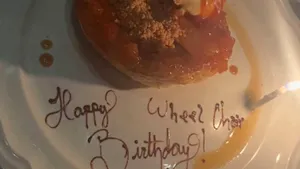 Happy! Wheel Chair
Birthday!